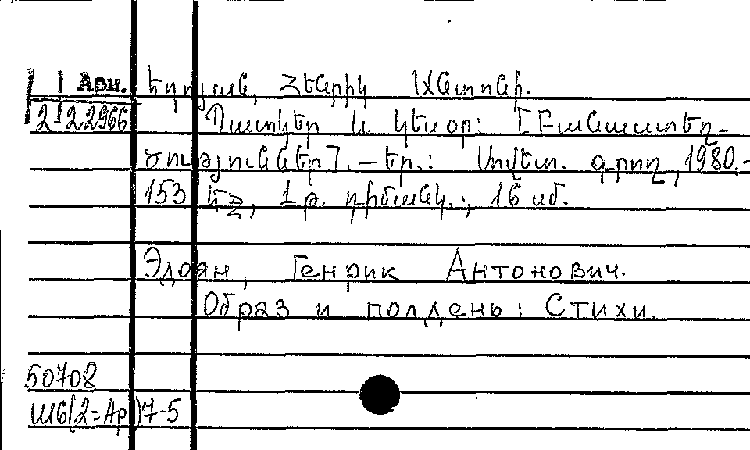 Арм. Էդոյան, Հենրիկ Անտոնի.
2122966 Պատկեր և կեսօր: [Բանաստեղ-
ծություններ]. — Եր.: Սովետ. գրող, 1980.-
153 էջ, 1 թ. դիմանկ.; 16 սմ.
Эдоян, Генрик Антонович.
Образ и полдень: Стихи.
50708
Ш6(2=Ар)7-5